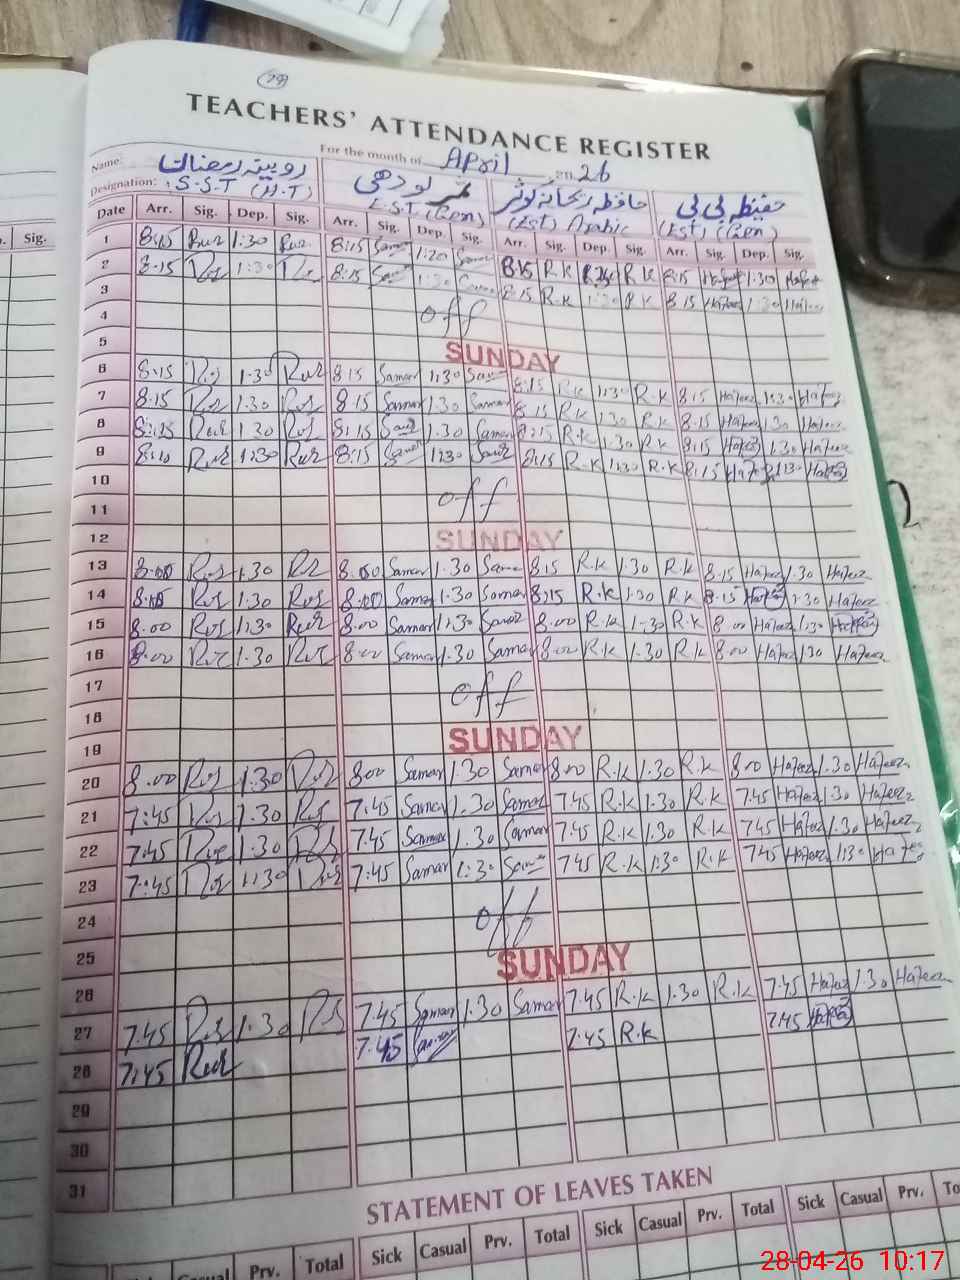 (29)
TEACHERS' ATTENDANCE REGISTER
For the month of April 2026
Name: روبینہ رمضان ثمر لودھی حافظہ ریحانہ کوثر حفیظہ بی بی
Designation: S.S.T (H.T) E.S.T (Gen) (Est) Arabic (Est) (Gen)
Sig. Date Arr. Sig. Dep. Sig. Arr. Sig. Dep. Sig. Arr. Sig. Dep. Sig. Arr. Sig. Dep. Sig.
1 8:15 1:30 8:15 1:20 8:15 R.K R.K 8:15 Hafeez 1:30 Hafeez
2 8:15 1:30 8:15 1:30 8:15 R.K 1:30 R.K 8:15 Hafeez 1:30 Hafeez
3
4 off
5 SUNDAY
6 8:15 1:30 8:15 Samar 1:30 8:15 R.K 1:30 R.K 8:15 Hafeez 1:30 Hafeez
7 8:15 1.30 8:15 Samar 1.30 Samar 8:15 R.K 1.30 R.K 8:15 Hafeez 1.30 Hafeez
8 8:15 1.30 8:15 1.30 Samar 8:15 R.K 1.30 R.K 8:15 Hafeez 1.30 Hafeez
9 8:10 1:30 8:15 1:30 8:15 R.K 1:30 R.K 8:15 1:30
10
11 off
12 SUNDAY
13 8.00 1.30 8.00 Samar 1.30 Samar 8:15 R.K 1.30 R.K 8.15 Hafeez 1.30 Hafeez
14 8.00 1.30 8.00 Samar 1.30 Samar 8:15 R.K 1.30 R.K 8.15 1.30 Hafeez
15 8.00 1:30 8.00 Samar 1:30 8.00 R.K 1.30 R.K 8.00 Hafeez 1:30
16 8.00 1.30 8.00 Samar 1.30 Samar 8.00 R.K 1.30 R.K 8.00 Hafeez 1.30 Hafeez
17
18 off
19 SUNDAY
20 8.00 1.30 8.00 Samar 1.30 Samar 8.00 R.K 1.30 R.K 8.00 Hafeez 1.30 Hafeez
21 7:45 1.30 7:45 Samar 1.30 Samar 7.45 R.K 1.30 R.K 7.45 Hafeez 1.30 Hafeez
22 7.45 1.30 7.45 Samar 1.30 Samar 7.45 R.K 1.30 R.K 7.45 Hafeez 1.30 Hafeez
23 7:45 1:30 7:45 Samar 1:30 7.45 R.K 1:30 R.K 7.45 Hafeez 1:30 Hafeez
24
25 off
26 SUNDAY
27 7.45 1.30 7.45 Samar 1.30 Samar 7.45 R.K 1.30 R.K 7.45 Hafeez 1.30 Hafeez
28 7:45 7:45 7:45 R.K 7:45
29
30
31
STATEMENT OF LEAVES TAKEN
Sick Casual Prv. Total Sick Casual Prv. Total Sick Casual Prv. Total Sick Casual Prv.
28-04-26 10:17